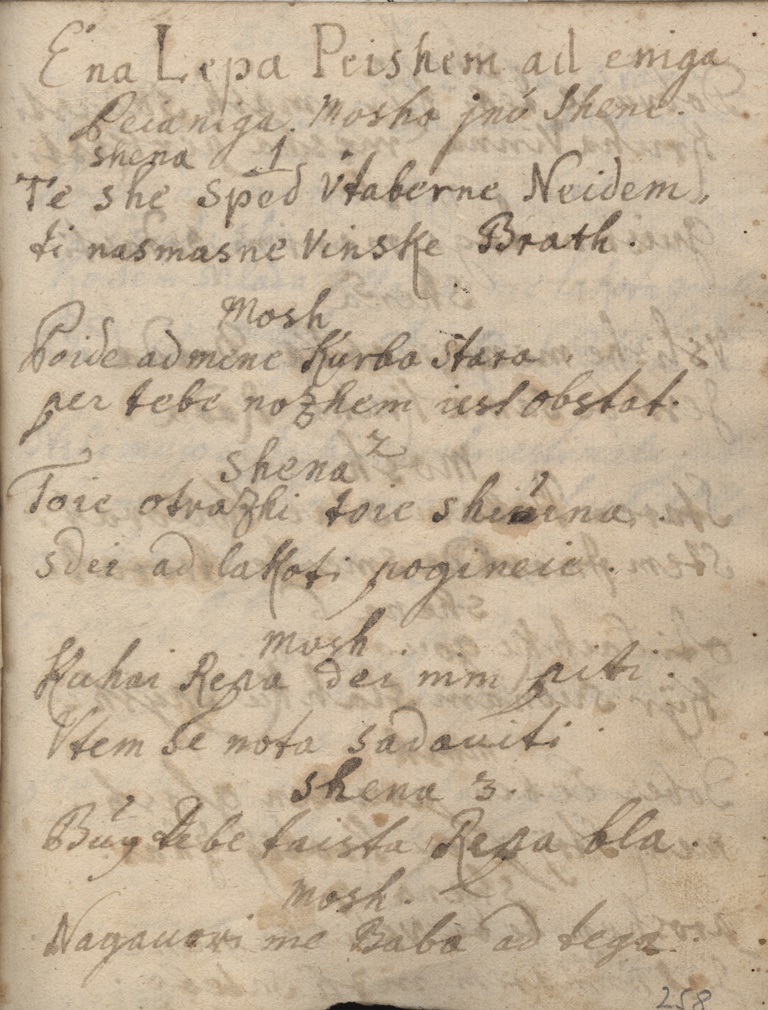 Ena Lepa Peishem ad eniga
Peianiga Mosha jnó Shene.
shena 1
Te she sped vtaberne Neidem,
ti nasmasne vinske Brath.
Mosh
Poide admene Kurba stara.
per tebe nozhem iest obstat.
shena 2
Toie otrozhi toie shivina.
sdei ad lakoti pogineie.
mosh.
Kuhai Repa dei mim piti.
Vtem se nota sadauiti.
shena 3.
Búg tebe taista Repa bla.
mosh.
Nagauori me Baba ad tega
258